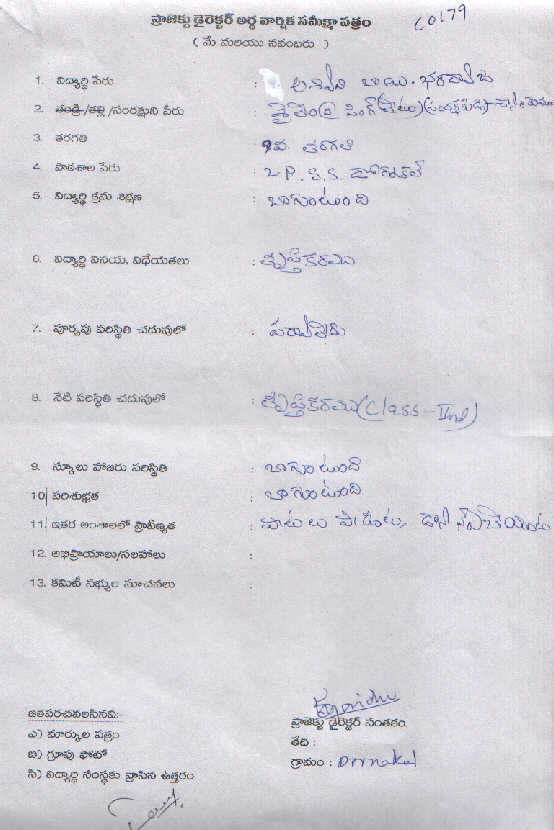 ప్రాజెక్టు డైరెక్టర్ అర్ధ వార్షిక సమీక్షా పత్రం
( మే మరియు నవంబరు )
1. విద్యార్థి పేరు :
2. తండ్రి/తల్లి/సంరక్షుని పేరు :
3. తరగతి : 9వ తరగతి
4. పాఠశాల పేరు : Z.P.S.S. డోర్నకల్
5. విద్యార్థి క్రమ శిక్షణ : బాగుంటుంది
6. విద్యార్థి వినయ, విధేయతలు : తృప్తికరము
7. పూర్వపు పరిస్థితి చదువులో : పర్వాలేదు
8. నేటి పరిస్థితి చదువులో : తృప్తికరము (Class - IInd)
9. స్కూలు హాజరు పరిస్థితి : బాగుంటుంది
10. పరిశుభ్రత : బాగుంటుంది
11. ఇతర అంశాలలో ప్రావీణ్యత : పాటలు పాడుట, డాన్స్
12. అభిప్రాయాలు/సలహాలు :
13. కమిటీ సభ్యుల సూచనలు :
జతపరచవలసినవి:-
ఎ) మార్కుల పత్రం
బి) గ్రూపు ఫోటో
సి) విద్యార్థి సంస్థకు వ్రాసిన ఉత్తరం
ప్రాజెక్టు డైరెక్టర్ సంతకం
తేది :
గ్రామం : Dornakal